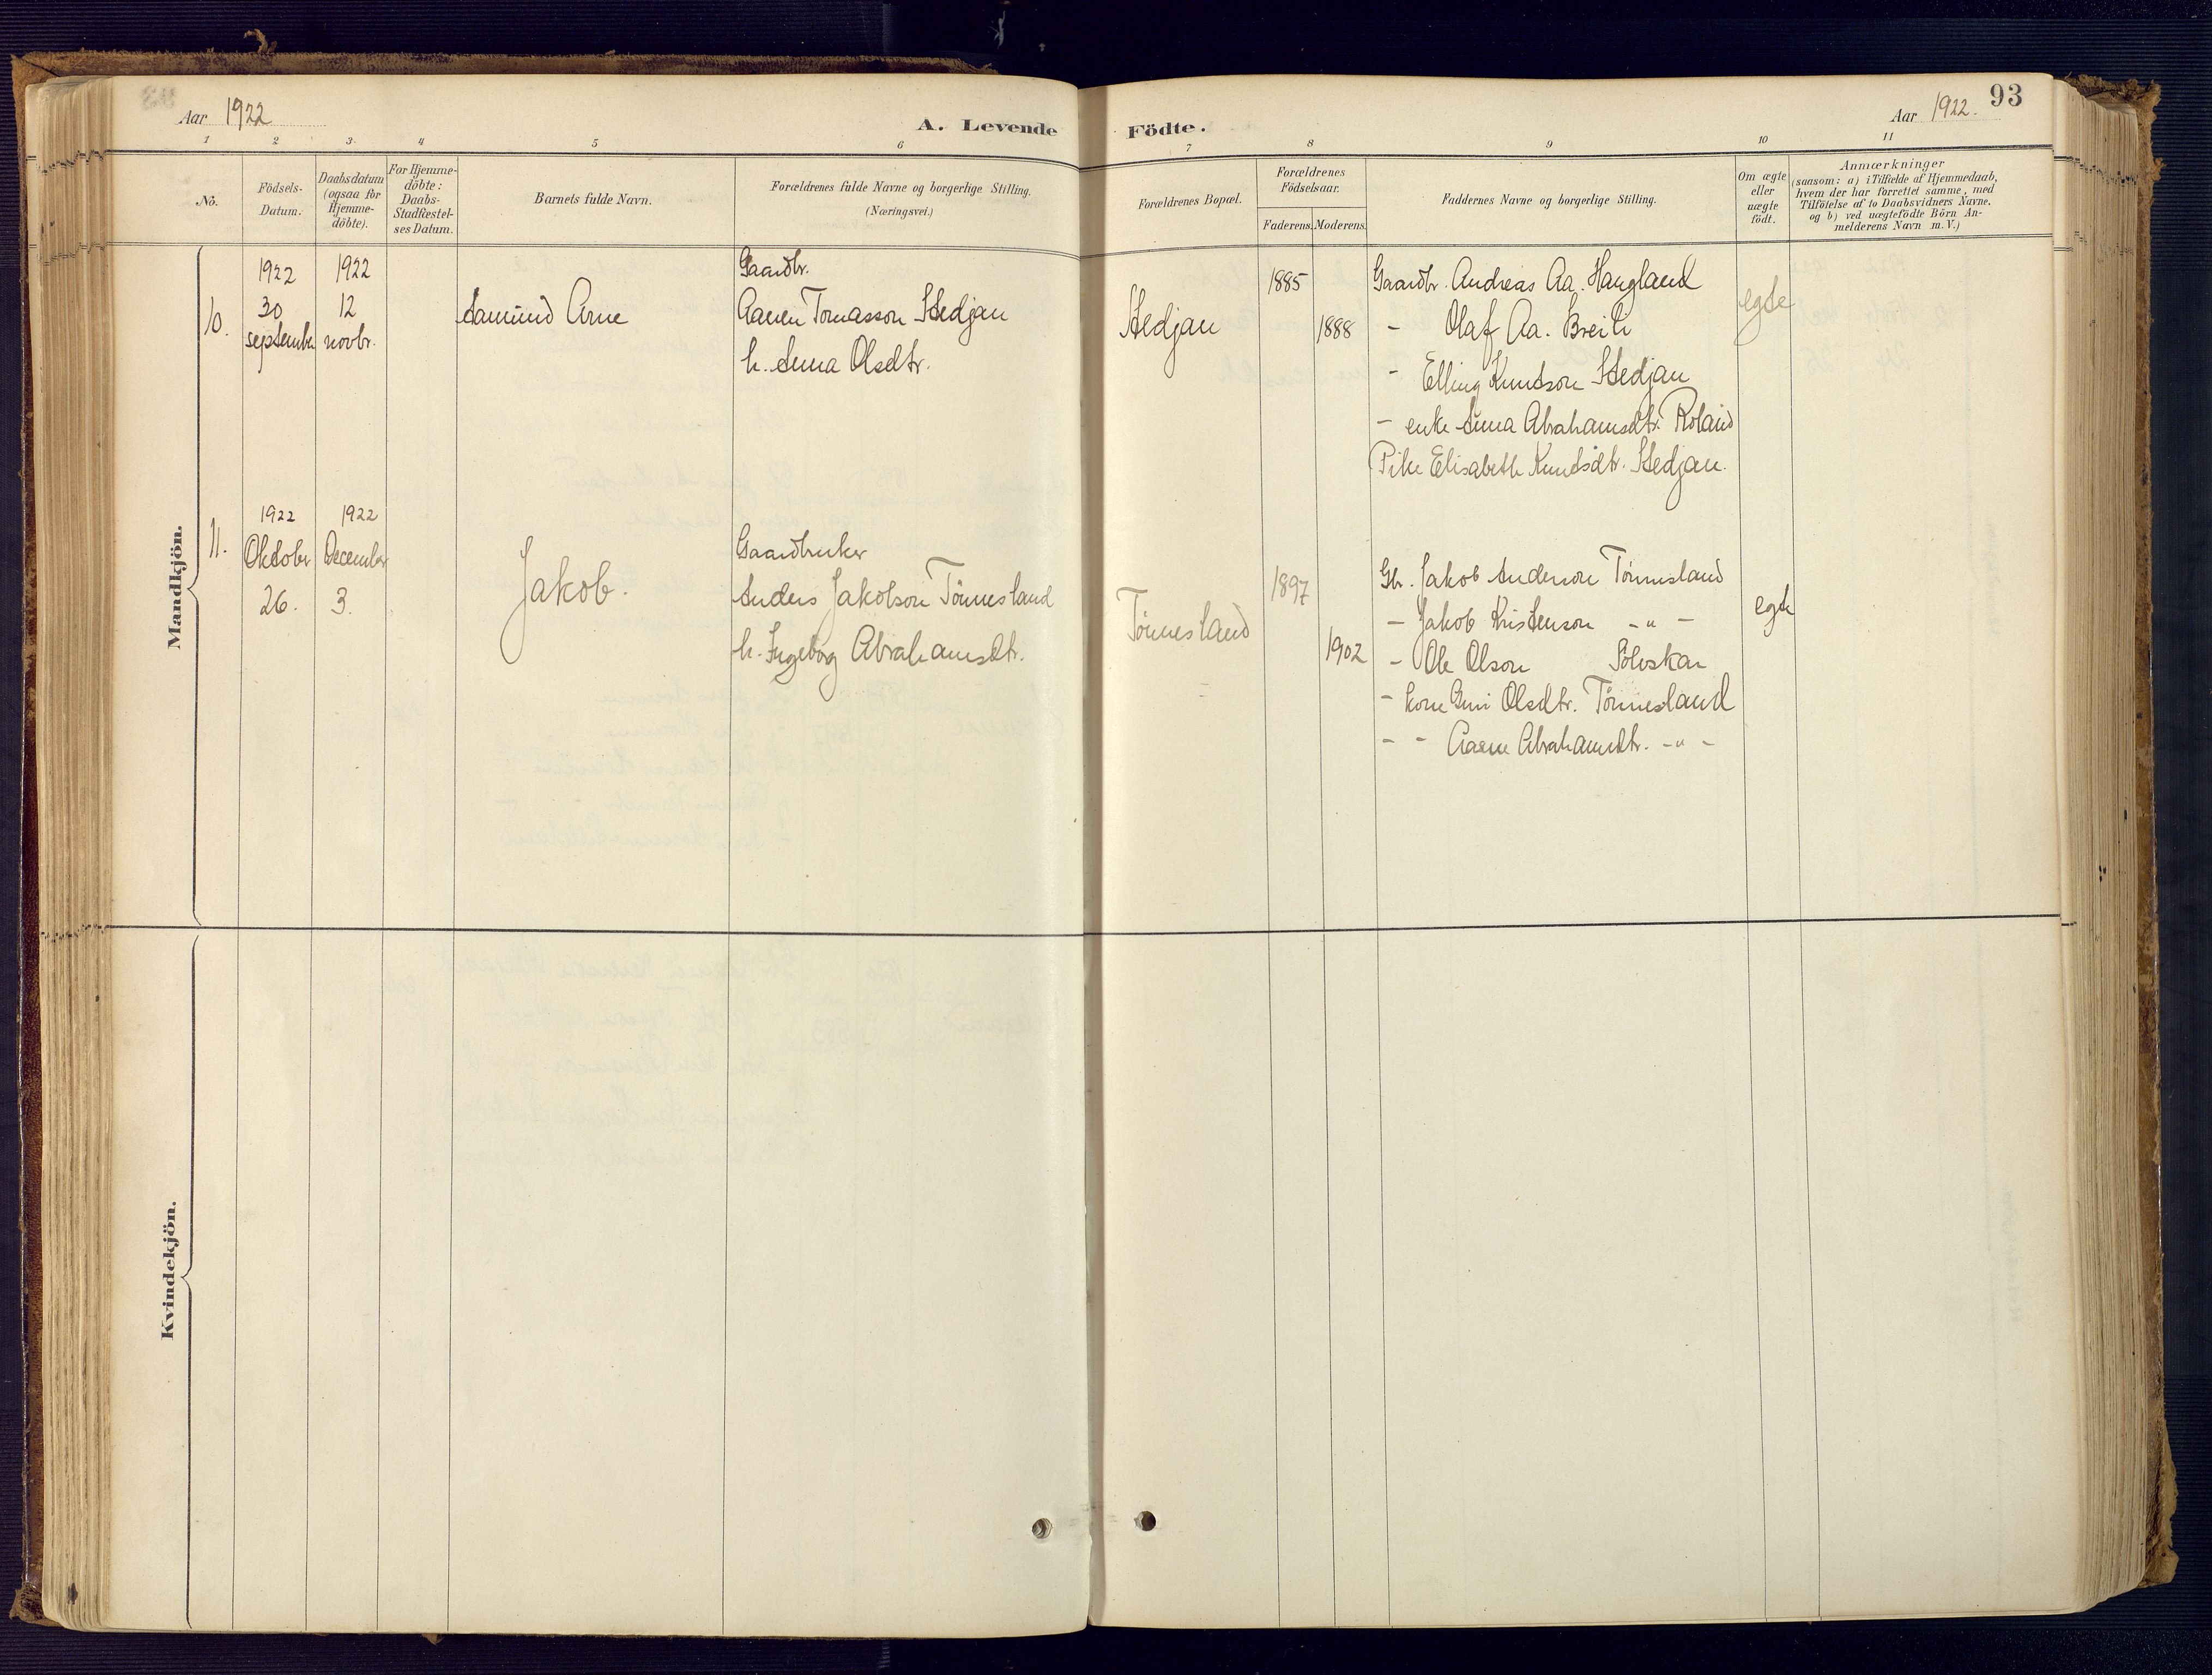 Aar 1922
A. Levende Födte.
Aar 1922.
93
1 2 3. 4 5 6 7 8 9 10 11
No.
Födsels-
Datum.
Daabsdatum
(ogsaa for
Hjemme-
döbte).
For Hjemme-
döbte:
Daabs-
Stadfestel-
ses Datum.
Barnets fulde Navn.
Forældrenes fulde Navne og borgerlige Stilling.
(Næringsvei.)
Forældrenes Bopæl.
Forældrenes
Födselsaar.
Faderens. Moderens.
Faddernes Navne og borgerlige Stilling.
Om ægte
eller
uægte
födt.
Anmærkninger
(saasom: a) i Tilfælde af Hjemmedaab,
hvem der har forrettet samme, med
Tilföielse af to Daabsvidners Navne.
og b) ved uægtefödte Börn An-
melderens Navn m.V.)
Mandkjön.
10.
1922
30
september
1922
12
novbr.
Aamund Arne
Gaardbr.
Aanen Tomasson Stedjan
h. Anna Olsdtr.
Stedjan
1885
1888
Gaardbr. Andreas Aa. Haugland
- Olaf Aa. Breili
- Elling Knudson Stedjan
- enke Anna Abrahamsdtr. Roland
Pike Elisabeth Knudsdtr. Stedjan.
egte
11.
1922
Oktober
26.
1922
December
3.
Jakob.
Gaardbruker
Anders Jakobson Tönnesland
h. Ingeborg Abrahamsdtr.
Tönnesland
1897
1902
Gbr. Jakob Anderson Tönnesland
- Jakob Kristenson - " -
- Ole Olson
- kone Guri Olsdtr. Tönnesland
- - Abrahamsdtr. - " -
egte
Kvindekjön.